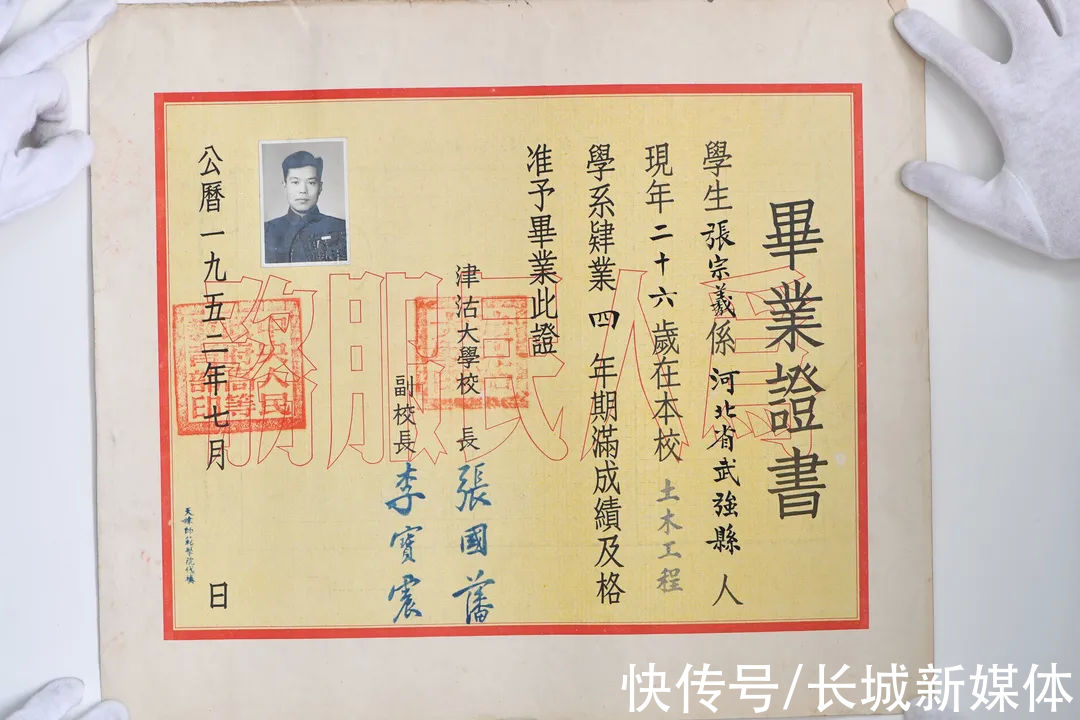 畢業證書
學生張宗義係河北省武強縣人
現年二十六歲在本校土木工程
學系肄業四年期滿成績及格
准予畢業此證
津沽大學校長張國藩
副校長李寶震
公曆一九五二年七月 日
天津師範學院代填
為人民服務
快传号/长城新媒体